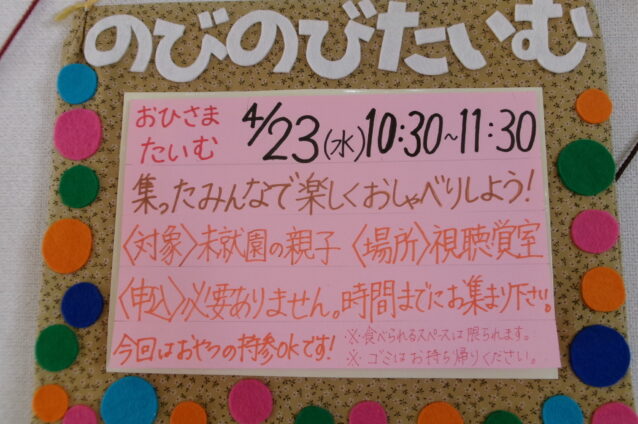 のびのびたいむ
おひさま
たいむ
4/23(水)10:30~11:30
集ったみんなで楽しくおしゃべりしよう!
〈対象〉未就園の親子 〈場所〉視聴覚室
〈申込〉必要ありません。時間までにお集まり下さい。
今回はおやつの持参okです!
※食べられるスペースは限られます。
※ゴミはお持ち帰りください。